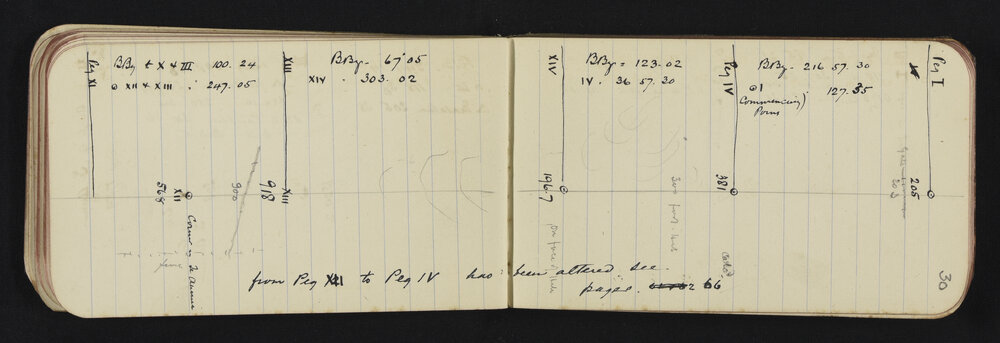 Peg XI
BBy & X & III 100.24
⊙ XII & XIII . 247.05
568
XII
⊙
Corner of
900
XIII
BBy - 67°05
XIV . 303.02
918
XIII
XIV
BBy = 123.02
IV . 36 57.30
1967
Peg IV
BBy - 216 57.30
⊙ I . 127.35
(Commencing)
Point
381
Peg I
205
30
from Peg XII to Peg IV has been altered see
pages 66